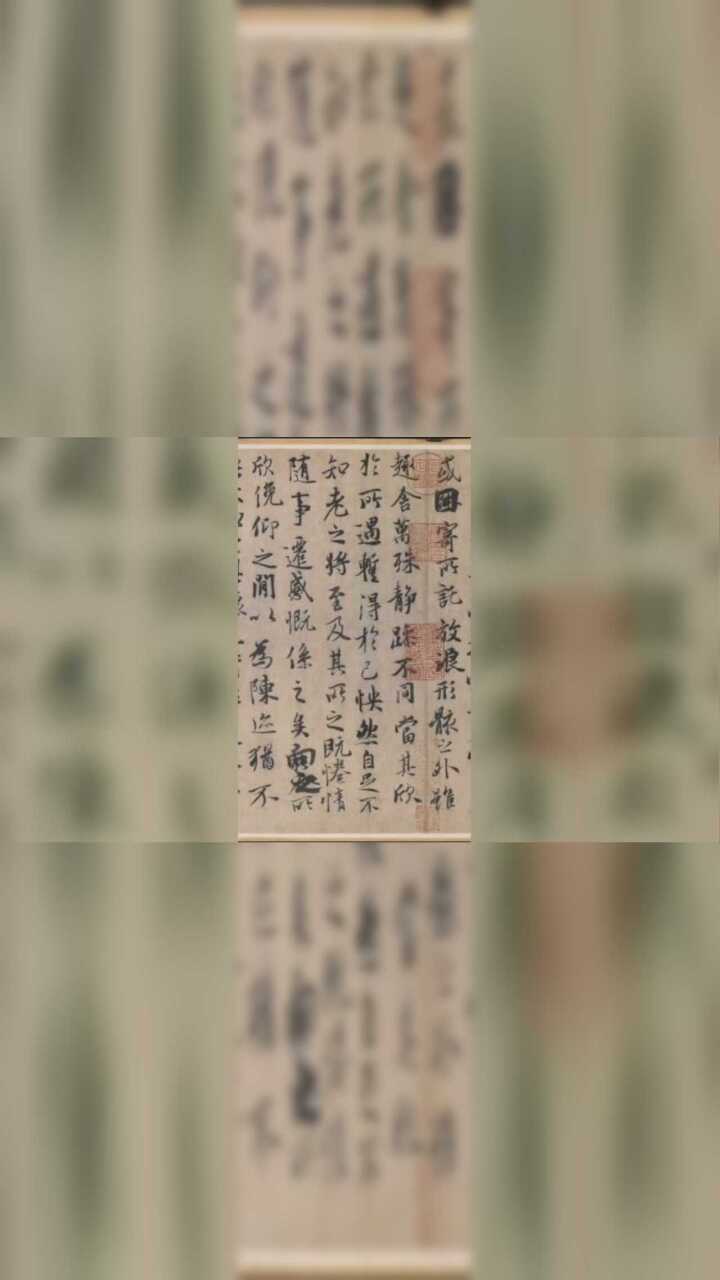 或因寄所託放浪形骸之外雖
趣舍萬殊静躁不同當其欣
於所遇暫得於己怏然自足不
知老之將至及其所之既惓情
隨事遷感慨係之矣向之所
欣俛仰之閒以為陳迹猶不